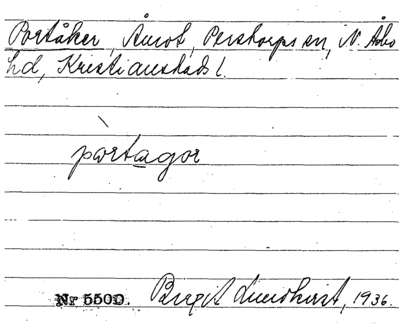 Portåker, Åmot, Perstorps sn, N. Åsbo
hd, Kristianstads l.
pòrtagor
Nr 5500. Birgit Lundkvist, 1936.